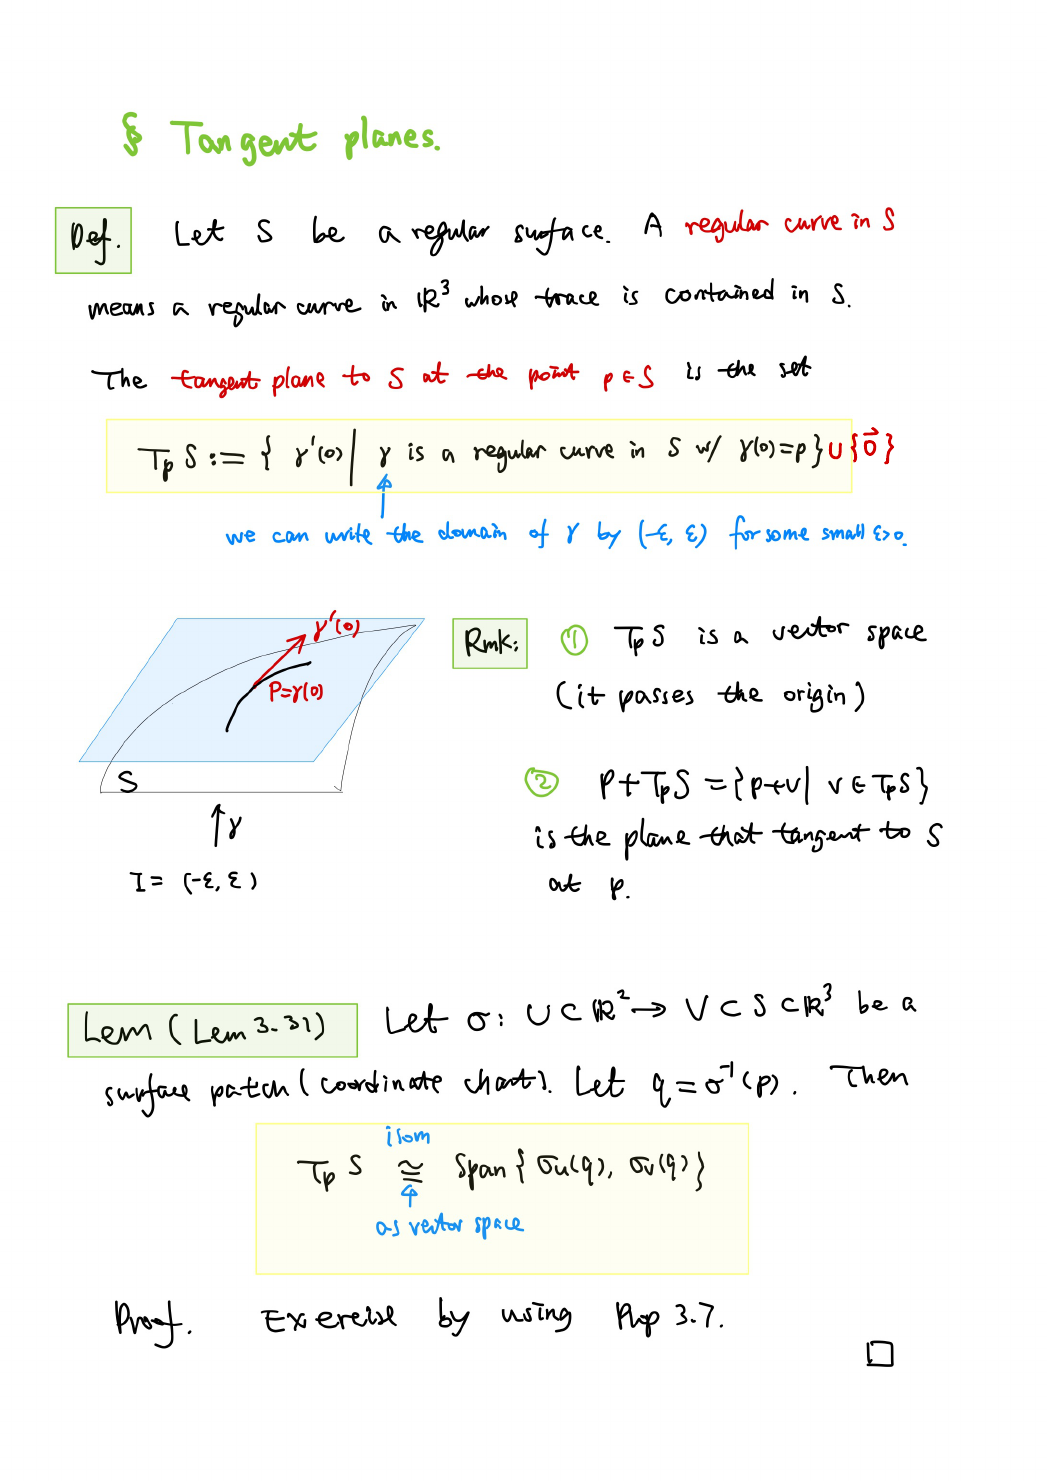 § Tangent planes.
Def. Let S be a regular surface. A regular curve in S
means a regular curve in ℝ³ whose trace is contained in S.
The tangent plane to S at the point p ∈ S is the set
TₚS := { γ'(0) | γ is a regular curve in S w/ γ(0)=p } ∪ {0⃗}
we can write the domain of γ by (-ε, ε) for some small ε>0.
γ'(0)
P=γ(0)
S
γ
I = (-ε, ε)
Rmk: ① TₚS is a vector space
(it passes the origin)
② P+TₚS = {p+v | v ∈ TₚS}
is the plane that tangent to S
at p.
Lem (Lem 3.31) Let σ: U ⊂ ℝ² → V ⊂ S ⊂ ℝ³ be a
surface patch (coordinate chart). Let q = σ⁻¹(p). Then
isom
TₚS ≅ Span { σᵤ(q), σᵥ(q) }
as vector space
Proof. Exercise by using Prop 3.7.
□